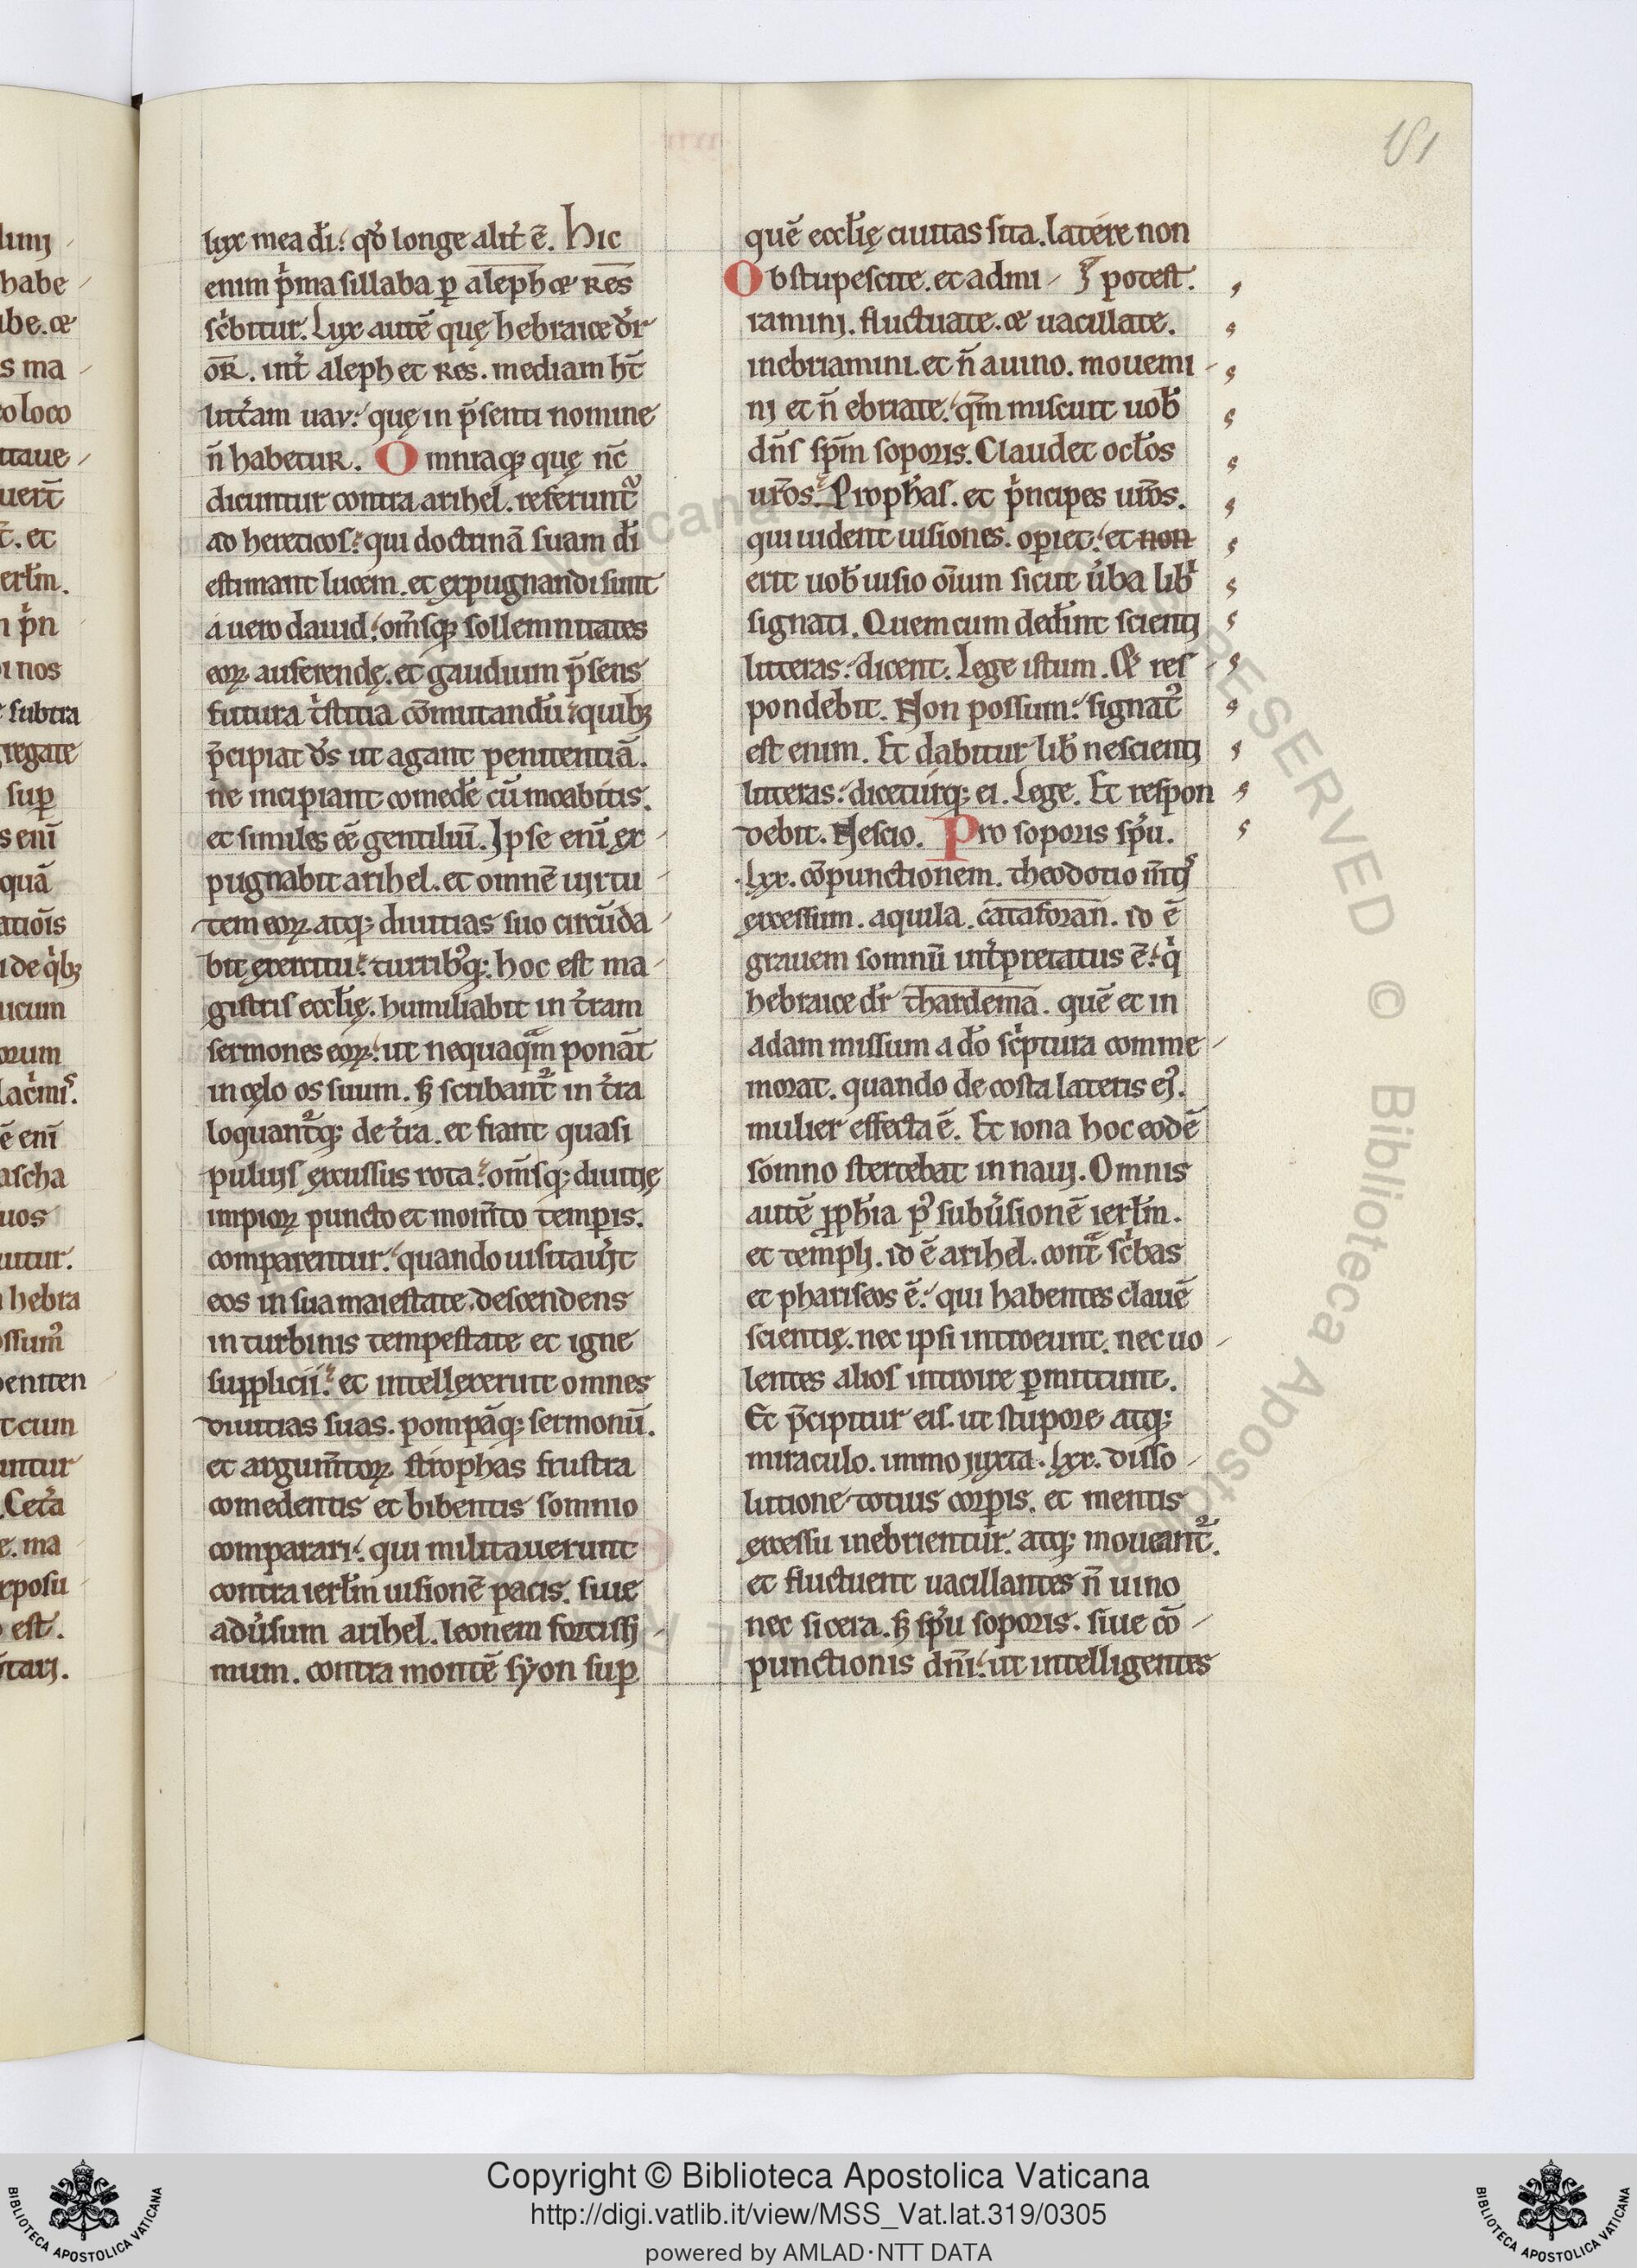 151
lux mea dī. qď longe alit̉ ē. Hic
enim p̉ma sillaba ꝑ aleph & Res
sc̉bitur. Lux autē quę hebraice dr̄
oR̄. int̉ aleph et Res. mediam ht̄
litt̉am uav. quę in p̄senti nomine
n̄ habetur. Omniaq; quę nc̄
dicuntur contra arihel. referunt᷑
ad hereticos. qui doctrinā suam dī
estimant lucem. et expugnandi sunt
a uero dauid. om̄sq; sollemnitates
eoꝝ auferendę. et gaudium p̄sens
futura t̉stitia cōmutandū. quib;
p̄cipiat ds̄ ut agant penitentiā.
ne incipiant comedē cū moabitis.
et similes eē gentiliū. Ipse enī ex
pugnabit arihel. et omnē uirtu
tem eoꝝ atq; diuitias suo circūda
bit exercitu. turribꝰq; hoc est ma
gistris eccl̄ię. humiliabit in t̉ram
sermones eoꝝ. ut nequaqᷓm ponāt
in cęlo os suum. sꝫ scribant᷑ in t̉ra
loquant᷑q; de t̉ra. et fiant quasi
puluis excussus rota. om̄sq; diuitię
impioꝝ puncto et mom̄to temꝑis.
comparentur. quando uisitaủit
eos in sua maiestate. descendens
in turbinis tempestate et igne
supplicii. et intellexerunt omnes
diuitias suas. pompāq; sermonū.
et argum̄toꝝ strophas frustra
comedentis et bibentis somnio
comparari. qui militauerunt
contra ierl̄m uisionē pacis. siue
adủsum arihel. leonem fortissi
mum. contra montē syon suꝑ
quē eccl̄ię ciuitas sita. latere non
Obstupescite. et admi potest.
ramini. fluctuate. & uacillate.
inebriamini. et n̄ a uino. mouemi
ni et n̄ ebriate. qm̄ miscuit uob̄
dn̄s sp̄m soporis. Claudet ocl̄os
ur̄os. Proph̄as. et p̉ncipes ur̄os.
qui uident uisiones. oꝑiet. et non
erit uob̄ uisio om̄ium sicut ủba lib̉
signati. Quem cum ded̉int scienti
litteras. dicent. Lege istum. & res
pondebit. Non possum. signatꝰ
est enim. Et dabitur lib̄ nescienti
litteras. diceturq; ei. Lege. Et respon
debit. Nescio. Pro soporis sp̄u.
.lxx. cōpunctionem. theodotio
excessum. aquila. cataforan. id ē
grauem somnū int̉pretatus ē. q̉
hebraice dr̄ thardema. quē et in
adam missum a dō sc̉ptura comme
morat. quando de costa lateris eꝰ.
mulier effecta ē. Et iona hoc eodē
somno stertebat in naui. Omnis
autē ꝓph̄ia pꝰ subủsionē ierl̄m.
et templi. id ē arihel. contᷓ sc̉bas
et phariseos ē. qui habentes clauē
scientię. nec ipsi introeunt. nec uo
lentes alios introire ꝑmittunt.
Et p̄cipitur eis. ut stupore atq;
miraculo. immo iuxta .lxx. disso
lutione totius corꝑis. et mentis
excessu inebrientur. atq; moueant᷑.
et fluctuent uacillantes n̄ uino
nec sicera. sꝫ sp̄u soporis. siue cō
punctionis dn̄i. ut intelligentes
Copyright © Biblioteca Apostolica Vaticana
http://digi.vatlib.it/view/MSS_Vat.lat.319/0305
powered by AMLAD·NTT DATA